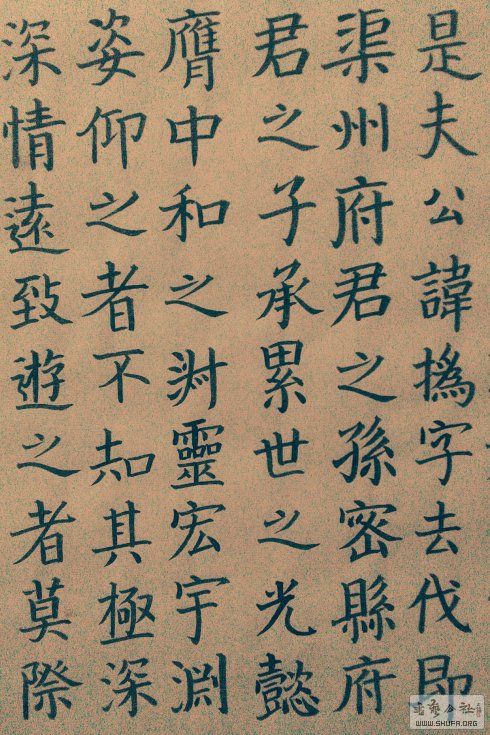 是夫公諱撝字去伐即
渠州府君之孫密縣府
君之子承累世之光懿
膺中和之淑靈宏宇淵
姿仰之者不知其極深
深情遠致遊之者莫際
WWW.SHUFA.ORG